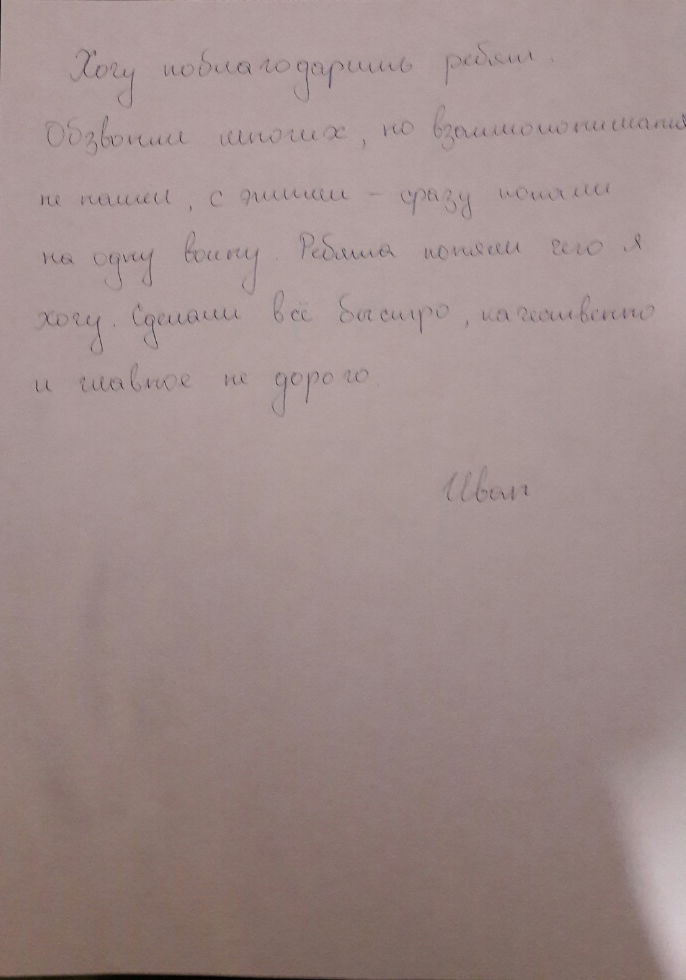 Хочу поблагодарить ребят.
Обзвонил многих, но взаимопонимания
не нашел, с этими - сразу попали
на одну волну. Ребята поняли чего я
хочу. Сделали всё быстро, качественно
и главное не дорого.
Иван